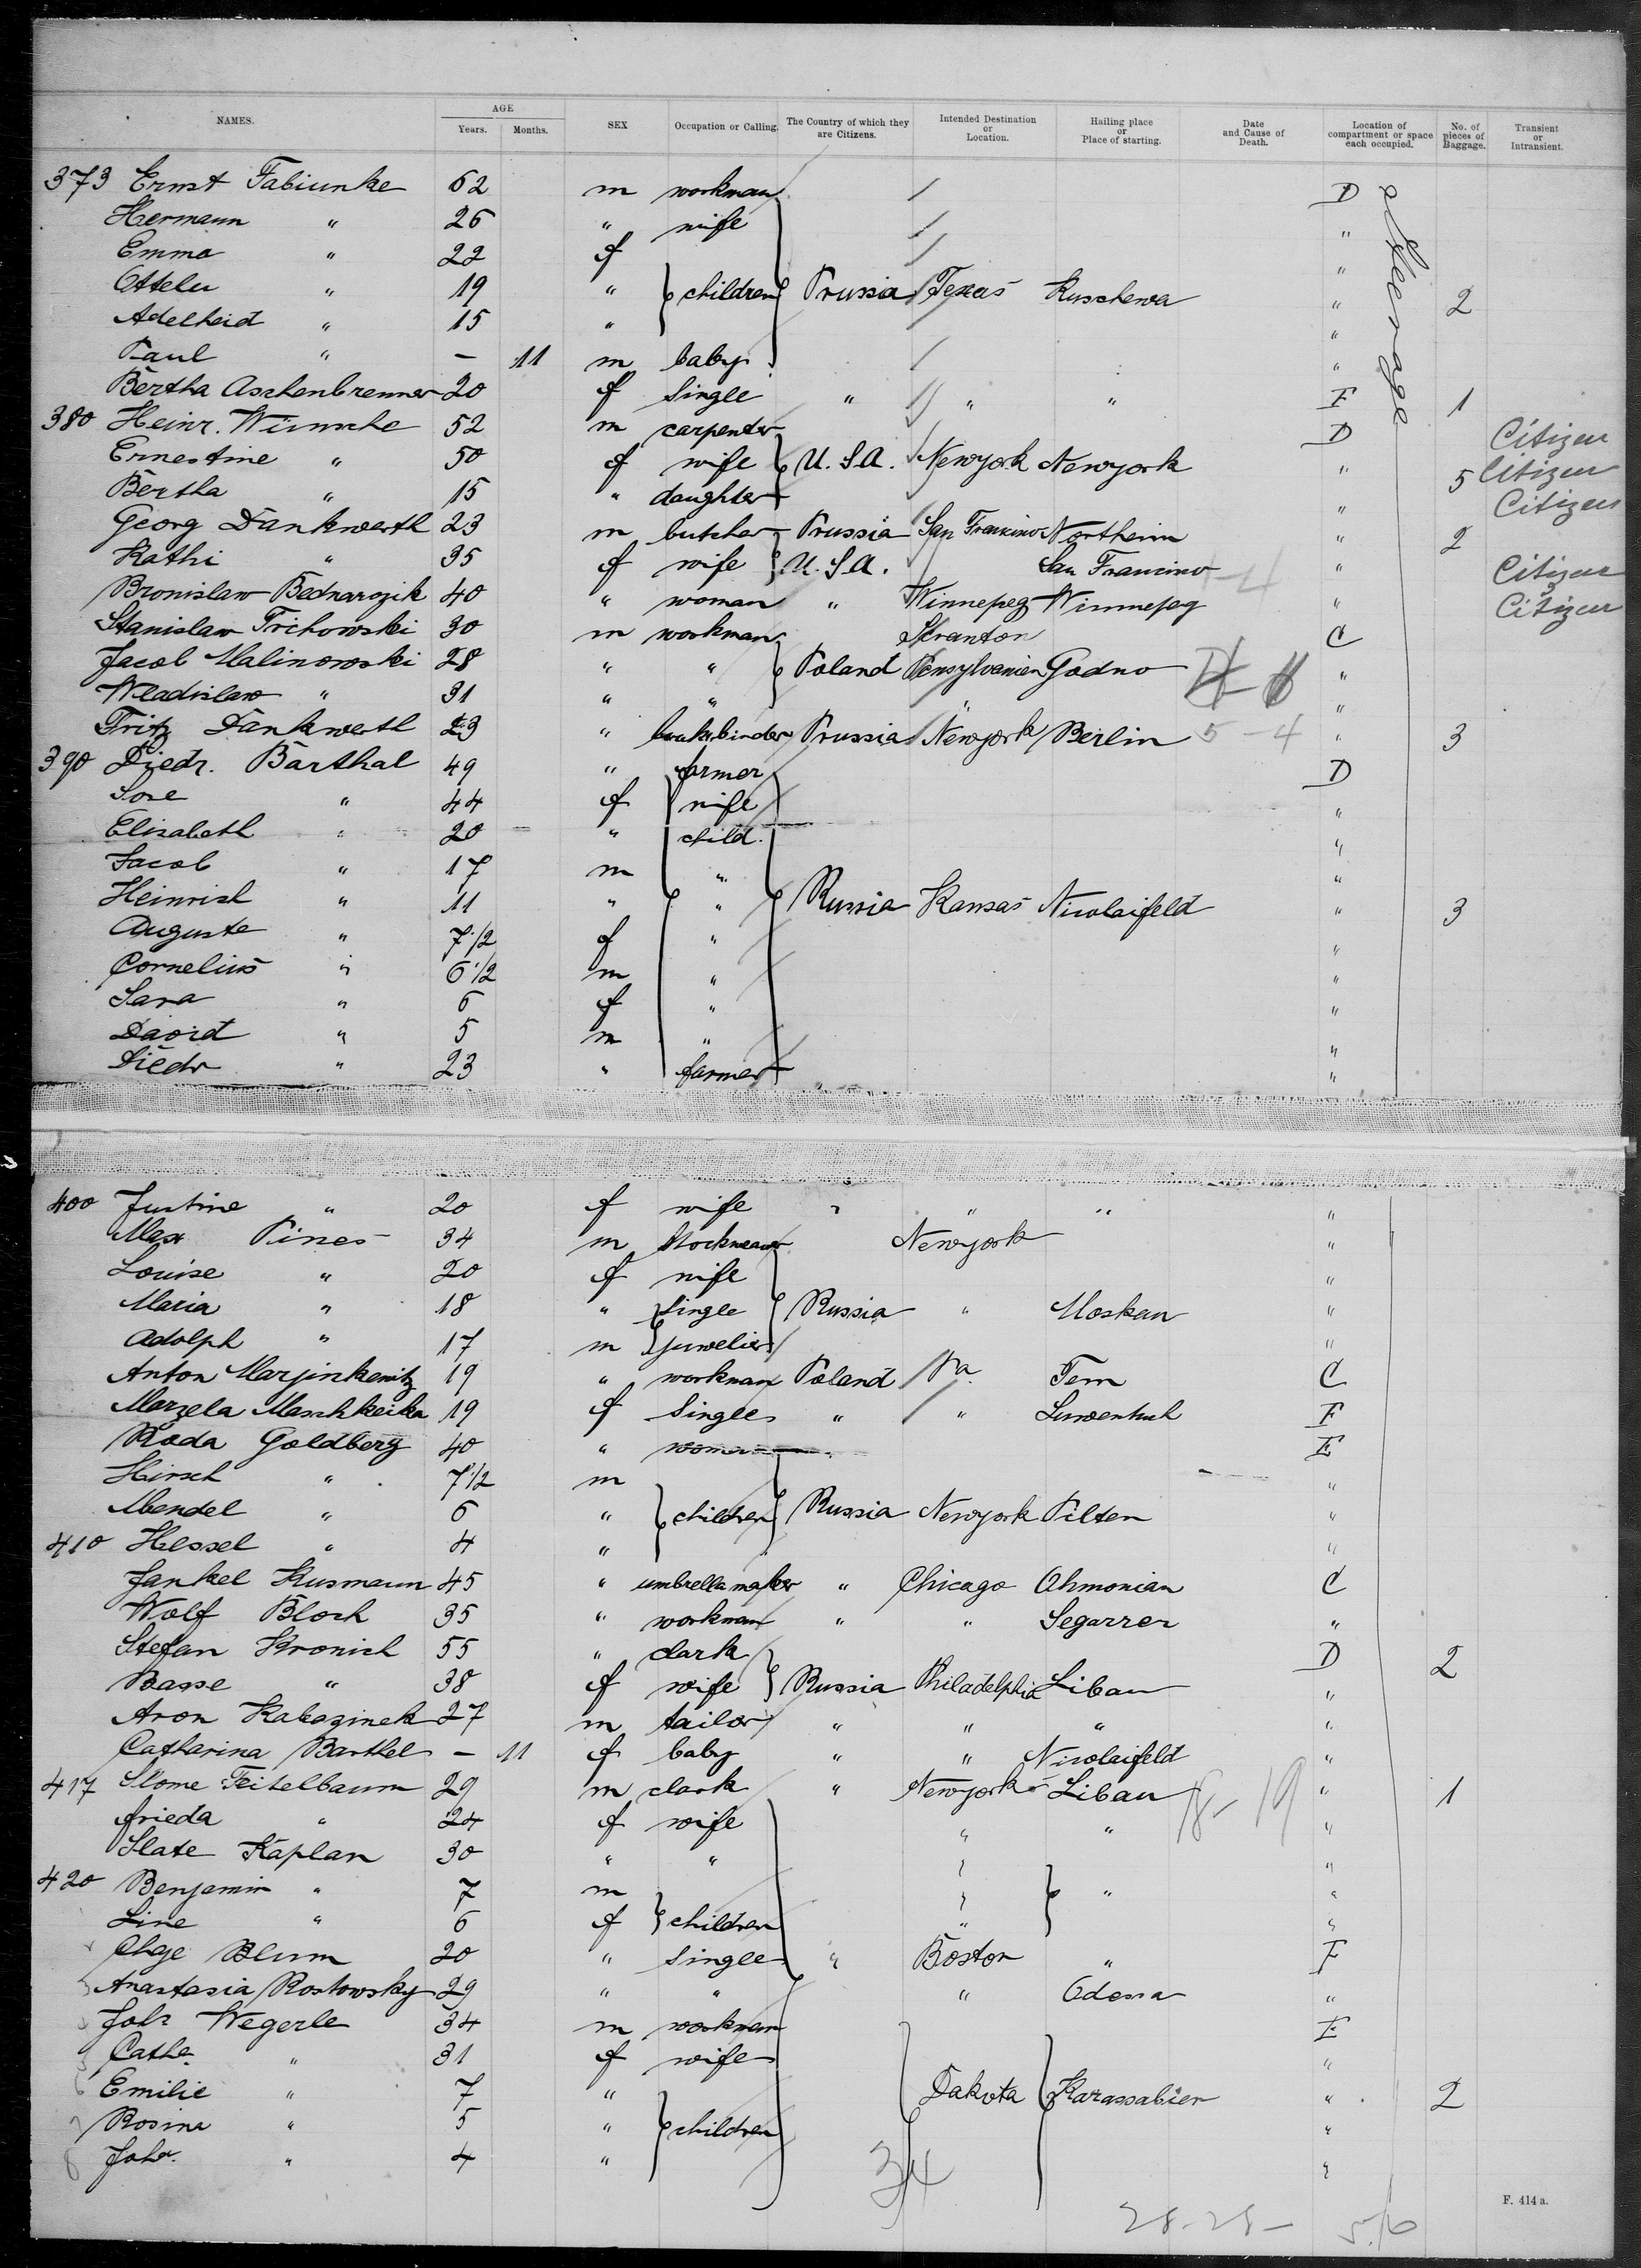 NAMES. AGE Years. Months. SEX Occupation or Calling. The Country of which they are Citizens. Intended Destination or Location. Hailing place or Place of starting. Date and Cause of Death. Location of compartment or space each occupied. No. of pieces of Baggage. Transient or Intransient.
373 Ernst Fabiunke 62 m workman D Steerage
Hermann " 26 " wife "
Emma " 22 f "
" 19 " children Prussia Texas Kuschewa " 2
Adelheid " 15 " "
Paul " – 11 m baby "
Bertha Aschenbrenner 20 f single " " " F 1
380 Heinr. Wünsche 52 m carpenter D Citizen
Ernestine " 50 f wife U.S.A. Newyork Newyork " 5 Citizen
Bertha " 15 " daughter " Citizen
Georg Dankwerth 23 m butcher Prussia San Francisco Northeim " 2
Kathi " 35 f wife U.S.A. San Francisco " Citizen
Bronislaw Bednarozik 40 " woman " Winnepeg Winnepeg " Citizen
Stanislaw Trichowski 30 m workman Skranton C
Jacob Malinowski 28 " " Poland Pensylvanien Godno "
Wladislaw " 31 " " " "
Fritz Dankwerth 23 " bookbinder Prussia Newyork Berlin 5-4 " 3
390 Diedr. Barthal 49 " farmer D
" 44 f wife "
Elisabeth " 20 " child. "
Jacob " 17 m " "
Heinrich " 11 " " Russia Kansas Nicolaifeld " 3
Auguste " 7 1/2 f " "
Cornelius " 6 1/2 m " "
Sara " 6 f " "
David " 5 m " "
Diedr " 23 " farmer "
400 Justine " 20 f wife " " " "
Max Pines 34 m Newyork "
Louise " 20 f wife "
Maria " 18 " single Russia " Moskau "
Adolph " 17 m juwelier "
Anton Marjinkewitz 19 " workman Poland Pa. C
Marzela Maschkeika 19 f Single " " F
Roda Goldberg 40 " woman E
Hirsch " 7 1/2 m "
Mendel " 6 " children Russia Newyork Pilten "
410 Hessel " 4 " "
Jankel Kusmann 45 " umbrella maker " Chicago Ahmonian C
Wolf Bloch 35 " workman " " Segarren "
Stefan Kronich 55 " clark D 2
Basse " 38 f wife Russia Philadelphia Libau "
Aron Kabaginek 27 m tailor " " " "
Catharina Barthel – 11 f baby " " Nicolaifeld "
417 Slome Teitelbaum 29 m clark " Newyork Libau 18-19 " 1
frieda " 24 f wife " " "
Slate Kaplan 30 " " " "
420 Benjamin " 7 m " " "
Line " 6 f children " "
Chaje Blum 20 " single " Boston " F
Anastasia Rostowsky 29 " " " Odessa "
Joh: Wegerle 34 m workman E
Cathe. " 31 f wife "
6 Emilie " 7 " Dakota Karassabier " 2
7 Rosina " 5 " children "
8 Joh. " 4 " "
34
28-28-
F. 414 a.